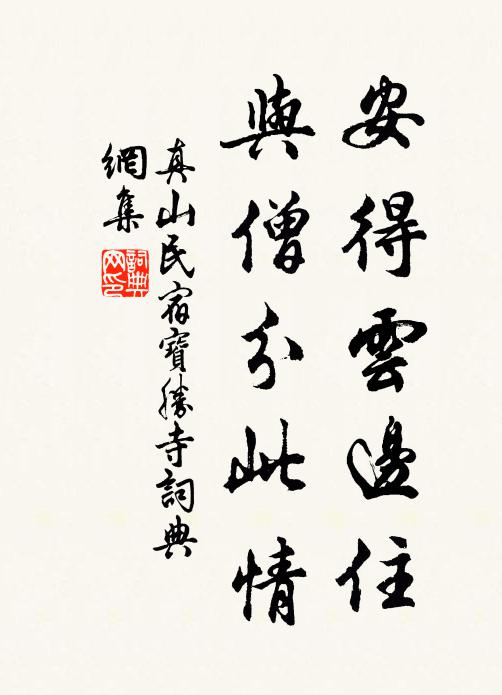 安得雲邊住
與僧分此情
真山民宿寶勝寺詞典
網集
詞典
网印